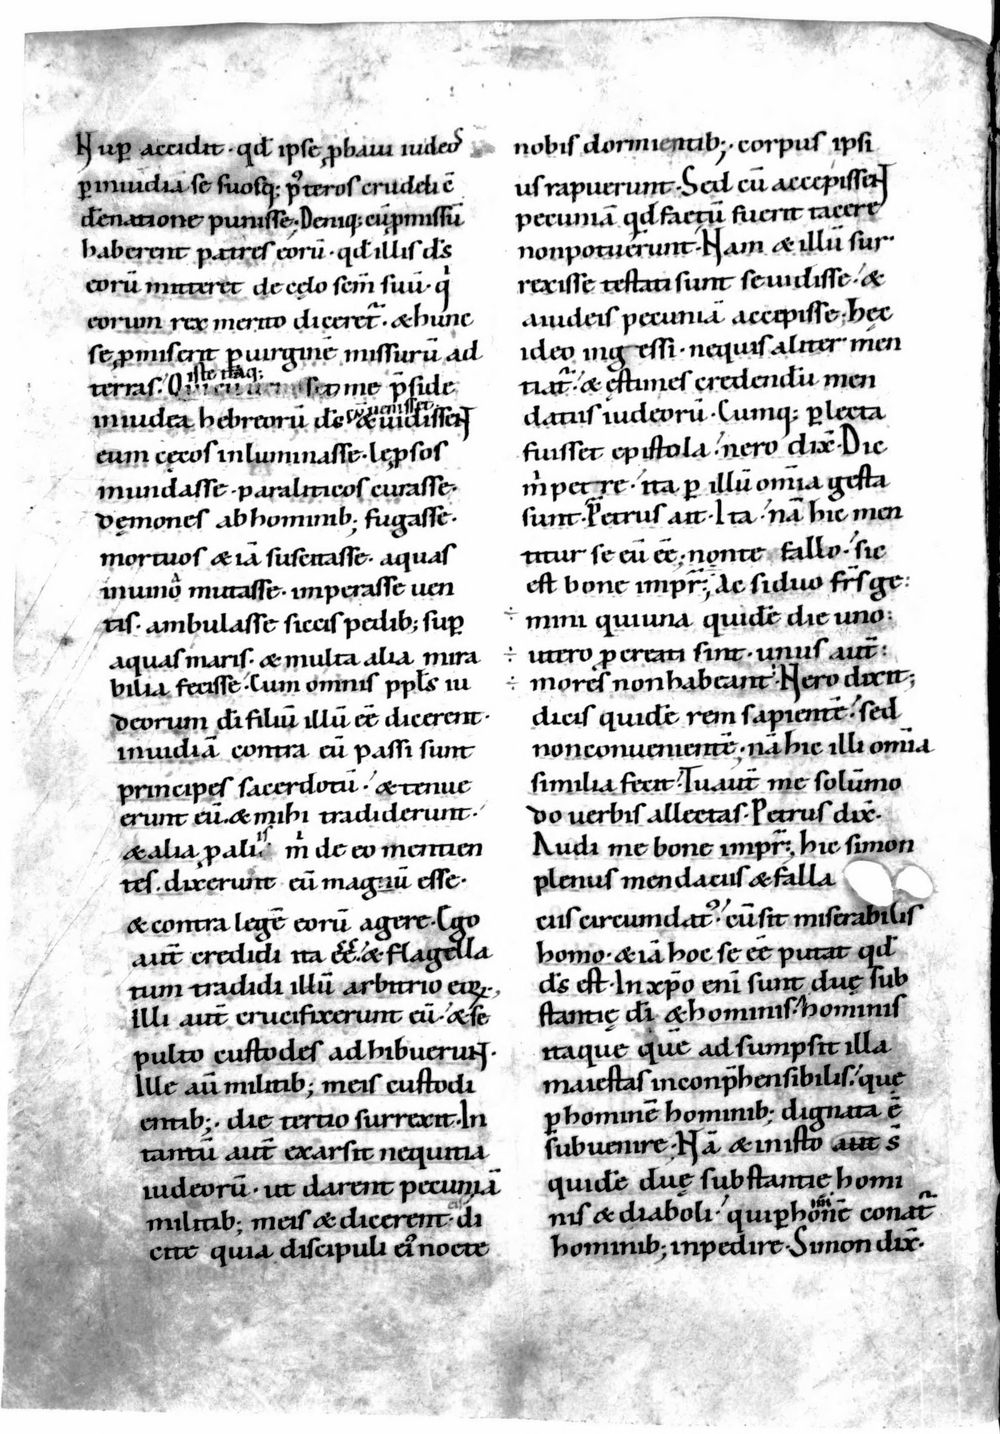 Nup̄ accidit · qđ ipse ꝓbaui iudeoˢ
ꝑ inuidiā se suosq; pꝰteros crudeli ē
dēnatione punisse · Deniq; cū ꝓmissū
haberent patres eorū · qđ illis d̄s
eorū mitteret de cęlo sc̄m suū · qͥ
eorum rex merito diceret᷑ · & hunc
se ꝓmiserit ꝑ uirginē missurū ad
terras · iste itaq; me p̄side
in iudea hebreorū d̄s cū uenisset & uidisseɴᴛ
eum cęcos inluminasse · leprosos
mundasse · paraliticos curasse ·
dęmones ab hominib; fugasse ·
mortuos & iā suscitasse · aquas
in uinū mutasse · imperasse uen
tis · ambulasse siccis pedib; suꝑ
aquas maris · & multa alia mira
bilia fecisse · Cum omnis ppl̄s iu
deorum dī filiū illū ēē dicerent ·
inuidiā contra eū passi sunt
principes sacerdotū · & tenue
erunt eū · & mihi tradiderunt ·
& alia ꝓ aliis m̄ de eo mentien
tes · dixerunt eū magum esse ·
& contra legē eorū agere · Ego
aūt credidi ita ēē · & flagella
tum tradidi illū arbitrio eoꝝ ·
Illi aūt crucifixerunt eū · & se
pulto custodes adhibueruɴᴛ ·
Ille aū militib; meis custodi
entib; · die tertio surrexit · In
tantū aūt exarsit nequitia
iudeorū · ut darent pecuniā
militib; meis & dicerent · di
cite quia discipuli eiꝰ nocte
nobis dormientib; · corpus ipsi
us rapuerunt · Sed cū accepisseɴᴛ
pecuniā qđ factū fuerit tacere
non potuerunt · Nam & illū sur
rexisse testati sunt se uidisse · &
a iudeis pecuniā accepisse · hęc
ideo ingessi · ne quis aliter men
tiat᷑ · & ęstimes credendū men
datiis iudeorū · Cumq; ꝑlecta
fuisset epistola · nero dix̄ · Dic
m̄ petre · ita ꝑ illū om̄ia gesta
sunt · Petrus ait · Ita · nā hic men
titur se eū ēē · non te fallo · sic
est bone impr̄ · Ac si duo fr̄s ge
mini qui una quidē die uno
utero procreati sint · unus aūt
mores non habeant · Nero dixit ;
dicis quidē rem sapientē · sed
non conuenientē · nā hic illi om̄ia
similia fecit · Tu aūt me solūmo
do uerbis allectas · Petrus dix̄ ·
Audi me bone impr̄ · hic simon
plenus mendaciis & falla
ciis circumdatꝰ · cū sit miserabilis
homo · & iā hoc se ēē putat qđ
d̄s est · In xp̄o enī sunt duę sub
stantię dī & hominis · hominis
itaque quē adsumpsit illa
maiestas inconp̄hensibilis · quę
ꝑ hominē hominib; dignata ē
subuenire · Nā & in isto aut s̄
quidē duę substantię homi
nis & diaboli · qui ꝑ hominē conat᷑
hominib; inpedire · Simon dix̄ ·